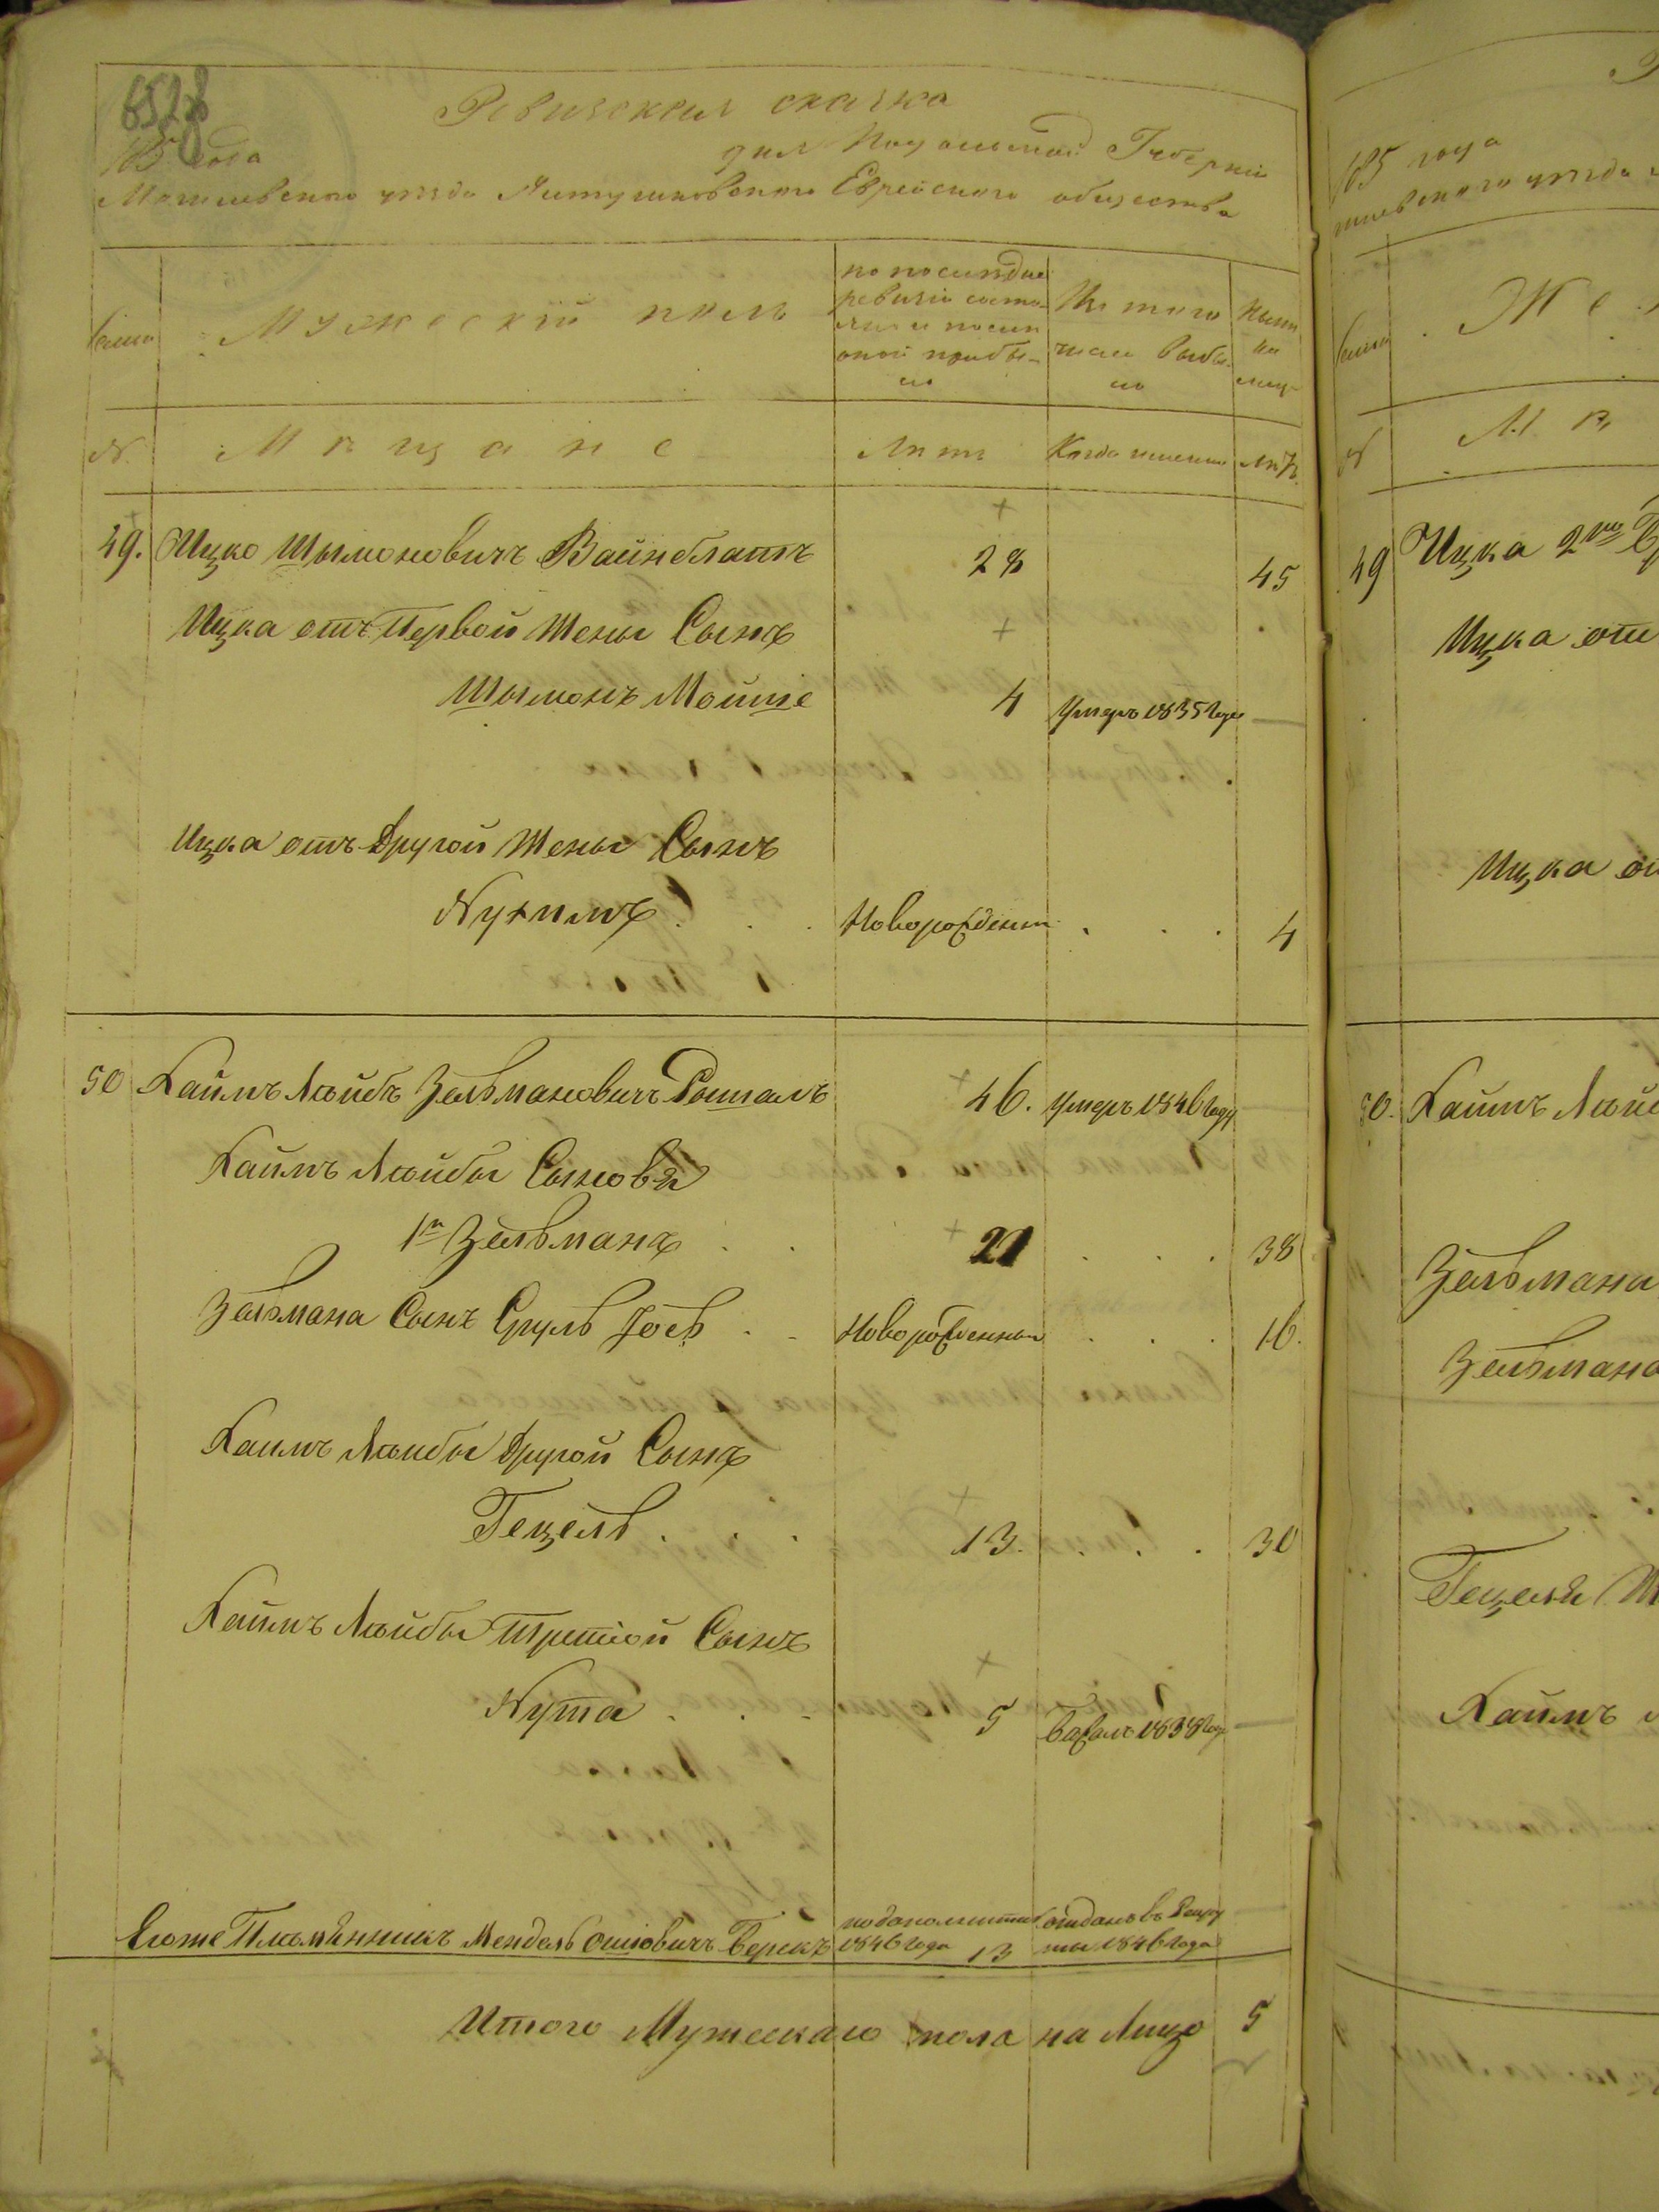 6528
Ревизская сказка
185 года для Подольской Губернии
Могилевскаго уезда Ялтушковскаго Еврейскаго общества
Мужеский полъ
по последней ревизии состояло и после оной прибыло
Из того числа выбыло
Ныне на лицо
№ Мещане Лета Когда именно Лета
49. Ицко Шымоновичъ Вайнблатъ 28 45
Ицка отъ Первой Жены Сынъ
Шымонъ Мойше 4 Умеръ 1835 Года
Ицка отъ Другой Жены Сынъ
Нухимъ Новорожденны 4
50 Хаимъ Лейбъ Зельмановичъ Рошалъ 46. Умеръ 1846 Году
Хаимъ Лейбы Сыновя
1й Зельманъ 21 38
Зельмана Сынъ Сруль Iосъ Новорожденны 16.
Хаимъ Лейбы Другой Сынъ
Гецель 13. 30
Хаимъ Лейбы Третiой Сынъ
Нута 5 бежалъ 1838 Году
Егоже Племянникъ Мендель Ошiовичъ Берекъ 1846 года 13 отданъ въ Рекруты 1846 Года
Итого Мужескаго пола на Лицо 5
185 года
Же
№ Ме
49 Ицка 2ая
Ицка отъ
Ицка от
50. Хаимъ Лей
Зельмана
Зельмана
Гецеля
Хаимъ